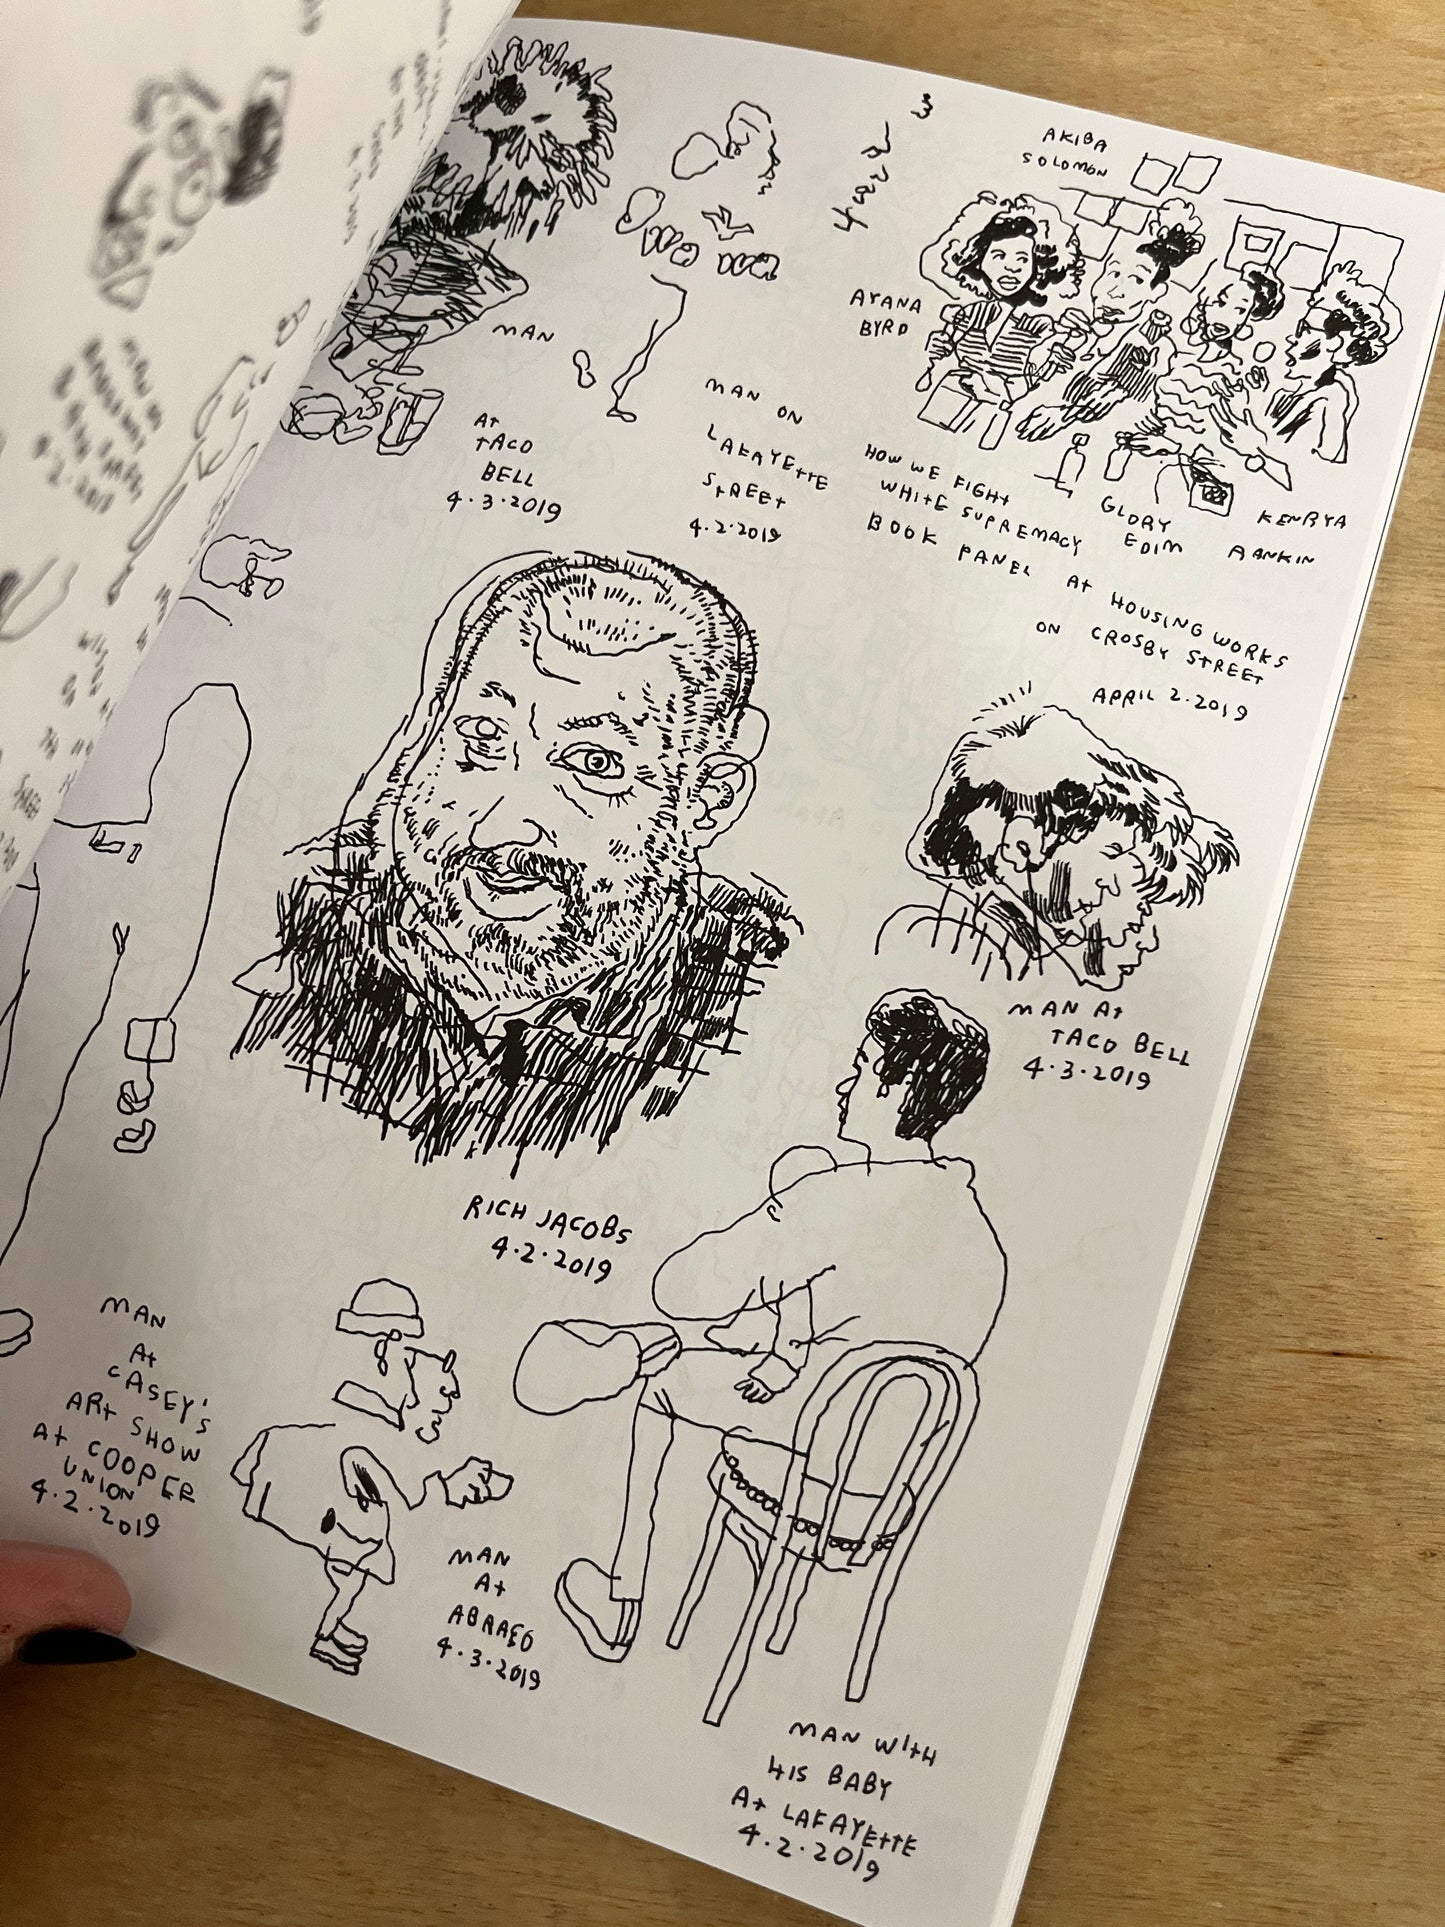 AKIBA
SOLOMON
AYANA
BYRD
MAN
At
TACO
BELL
4.3.2019
MAN ON
LAFAYETTE
STREET
4.2.2019
HOW WE FIGHT
WHITE SUPREMACY
BOOK PANEL At HOUSING WORKS
ON CROSBY STREET
APRIL 2.2019
GLORY
EDIM
KENRYA
RANKIN
MAN At
TACO BELL
4.3.2019
RICH JACOBS
4.2.2019
MAN
At
CASEY'S
ARt SHOW
At COOPER
UNION
4.2.2019
MAN
At
ABRAÇO
4.3.2019
MAN WItH
HIS BABY
At LAFAYEttE
4.2.2019